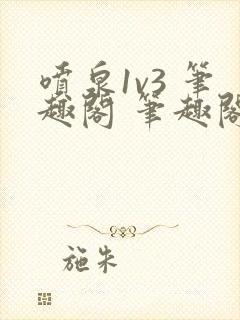 噴泉1v3 筆
趣閣 筆趣閣
施朱